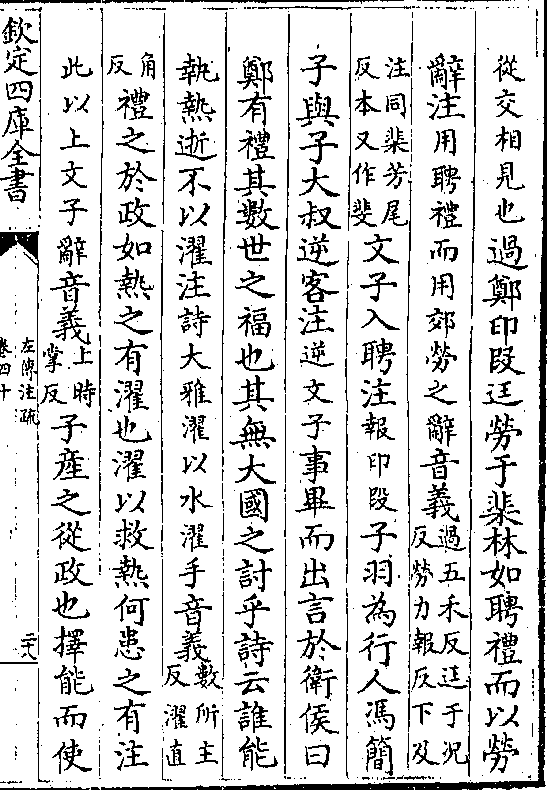 從交相見也過鄭印段迋勞于棐林如聘禮而以勞
辭注用聘禮而用郊勞之辭音義過五禾反迋于況反勞力報反下及
注同棐芳尾反本又作斐文子入聘注報印段子羽為行人馮簡
子與子大叔逆客注逆文子事畢而出言於衛侯曰
鄭有禮其數世之福也其無大國之討乎詩云誰能
執熱逝不以濯注詩大雅濯以水濯手音義數所主反濯直
角反禮之於政如熱之有濯也濯以救熱何患之有注
此以上文子辭音義上時掌反子產之從政也擇能而使
欽定四庫全書
左傳注疏
卷四十
二八